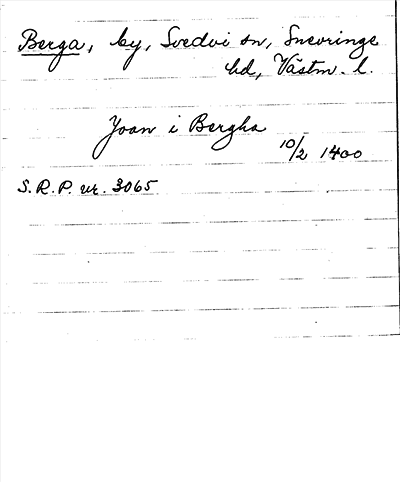 Berga, by, Svedvi sn, Snevringe
hd, Västm. l.
Joan i Bergha
10/2 1400
S.R.P. nr. 3065